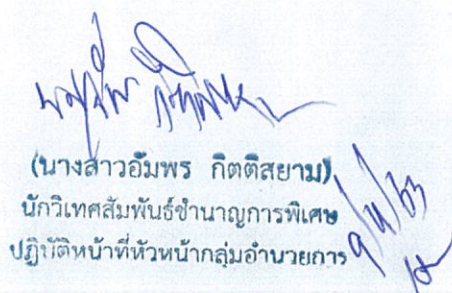 (นางสาวอัมพร กิตติสยาม)
นักวิเทศสัมพันธ์ชำนาญการพิเศษ
ปฏิบัติหน้าที่หัวหน้ากลุ่มอำนวยการ